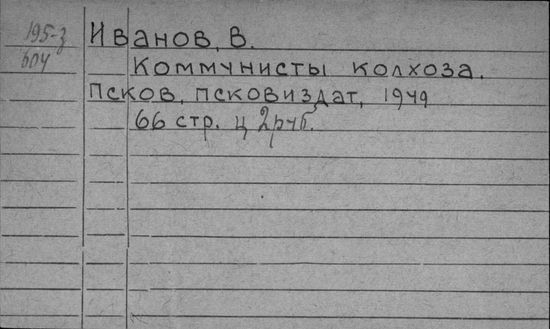 195-3
604
Иванов, В.
Коммунисты колхоза.
Псков, Псковиздат, 1949
66 стр. ц 2руб.